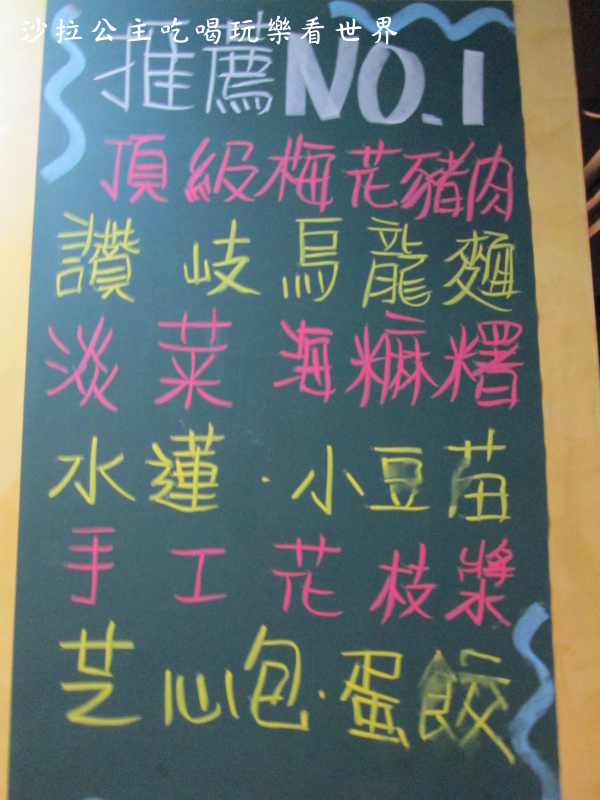 沙拉公主吃喝玩樂看世界
推薦NO.1
頂級梅花豬肉
讚岐烏龍麵
淡菜海麻糬
水蓮·小豆苗
手工花枝漿
芝心包·蛋餃